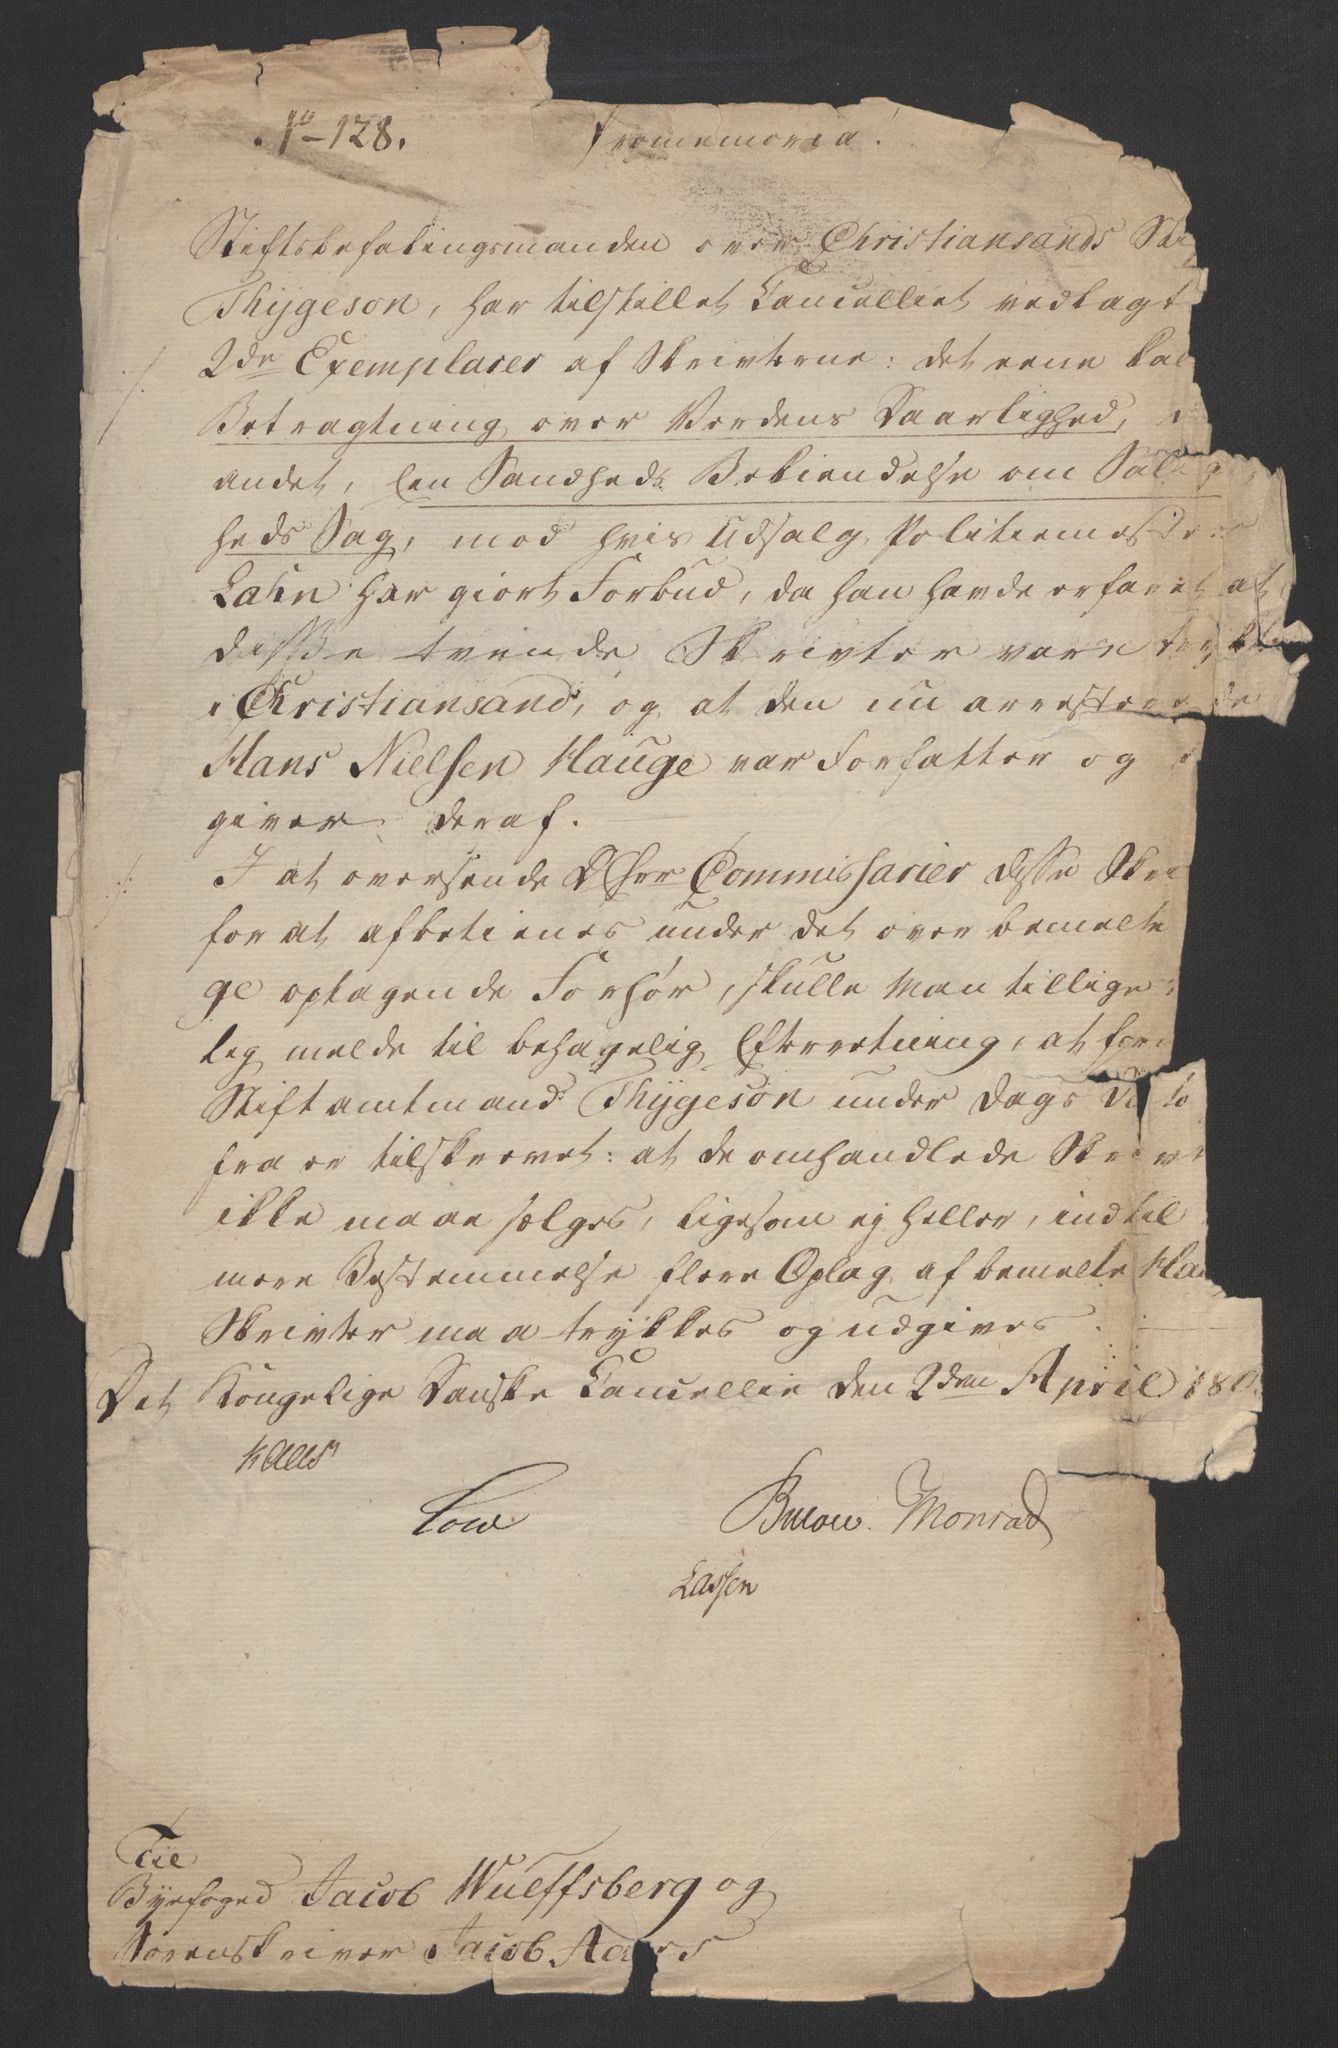 No 128. Promemoria!
Stiftsbefalingsmanden over Christiansands
Thygeson, har tilstillet Cancelliet vedlagt
2de Exemplarer af Skrivterne: det eene
Betragtning over Verdens Daarlighed,
andet, een Sandheds Bekiendelse om Salig
heds Sag, mod hvis Udsalg Politiemester
Lahn har giort Forbud, da han havde erfaret at
disse tvende Skrivter vare trykte
i Christiansand, og at den nu arresterede
Hans Nielsen Hauge var Forfatter og
giver deraf.
I at oversende D Hrr Commissarier disse
for at afbetienes under det over bemelte
ge optagende Forhør, skulle Man tillige
lig melde til behagelig Efterretning, at
Stiftamtmand Thygeson under Dags Dato
fra er tilskrevet: at de omhandlede
ikke maae sælges, ligesom ej heller, indtil
mere Bestemmelse flere Oplag af bemelte
Skrivter maa trykkes og udgives.
Det Kongelige Danske Cancellie den 2den April
Kaas
Cold Bülow. Monrad
Lassen
Til
Byefoged Jacob Wulffsberg og
Sorenskriver Jacob Aars